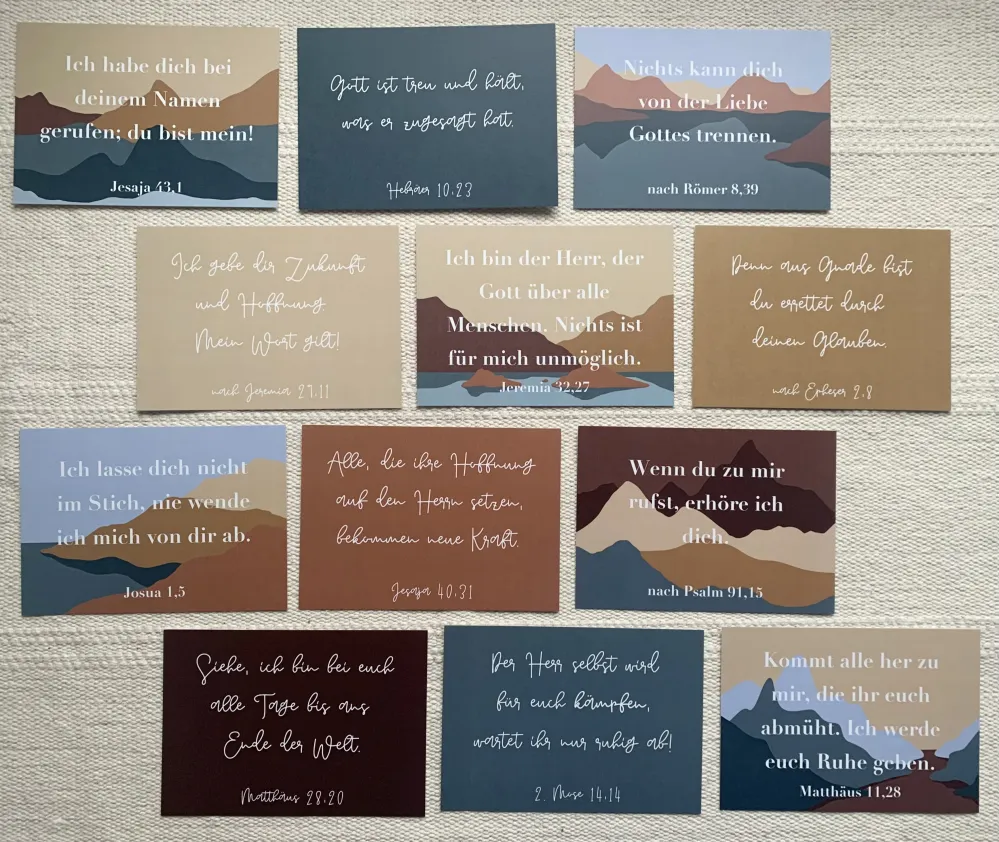 Ich habe dich bei
deinem Namen
gerufen; du bist mein!
Jesaja 43,1
Gott ist treu und hält,
was er zugesagt hat.
Hebräer 10,23
Nichts kann dich
von der Liebe
Gottes trennen.
nach Römer 8,39
Ich gebe dir Zukunft
und Hoffnung.
Mein Wort gilt!
nach Jeremia 29,11
Ich bin der Herr, der
Gott über alle
Menschen. Nichts ist
für mich unmöglich.
Jeremia 32,27
Denn aus Gnade bist
du errettet durch
deinen Glauben.
nach Epheser 2,8
Ich lasse dich nicht
im Stich, nie wende
ich mich von dir ab.
Josua 1,5
Alle, die ihre Hoffnung
auf den Herrn setzen,
bekommen neue Kraft.
Jesaja 40,31
Wenn du zu mir
rufst, erhöre ich
dich.
nach Psalm 91,15
Siehe, ich bin bei euch
alle Tage bis ans
Ende der Welt.
Matthäus 28,20
Der Herr selbst wird
für euch kämpfen,
wartet ihr nur ruhig ab!
2. Mose 14,14
Kommt alle her zu
mir, die ihr euch
abmüht. Ich werde
euch Ruhe geben.
Matthäus 11,28